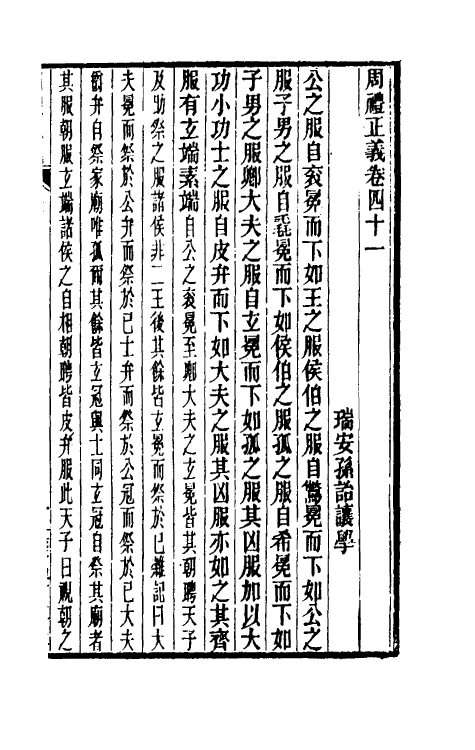 周禮正義卷四十一
瑞安孫詒讓學
公之服自衮冕而下如王之服侯伯之服自驚冕而下如公之
服子男之服自毳冕而下如侯伯之服孤之服自希冕而下如
子男之服卿大夫之服自玄冕而下如孤之服其凶服加以大
功小功士之服自皮弁而下如大夫之服其凶服亦如之其齊
服有玄端素端自公之衮冕至卿大夫之玄冕皆其朝聘天子
及助祭之服諸侯非二王後其餘皆玄冕而祭於己雜記曰大
夫冕而祭於公弁而祭於己士弁而祭於公冠而祭於己大夫
爵弁自祭家廟唯孤爾其餘皆玄冠與士同玄冠自祭其廟者
其服朝服玄端諸侯之自相朝聘皆皮弁服此天子日視朝之